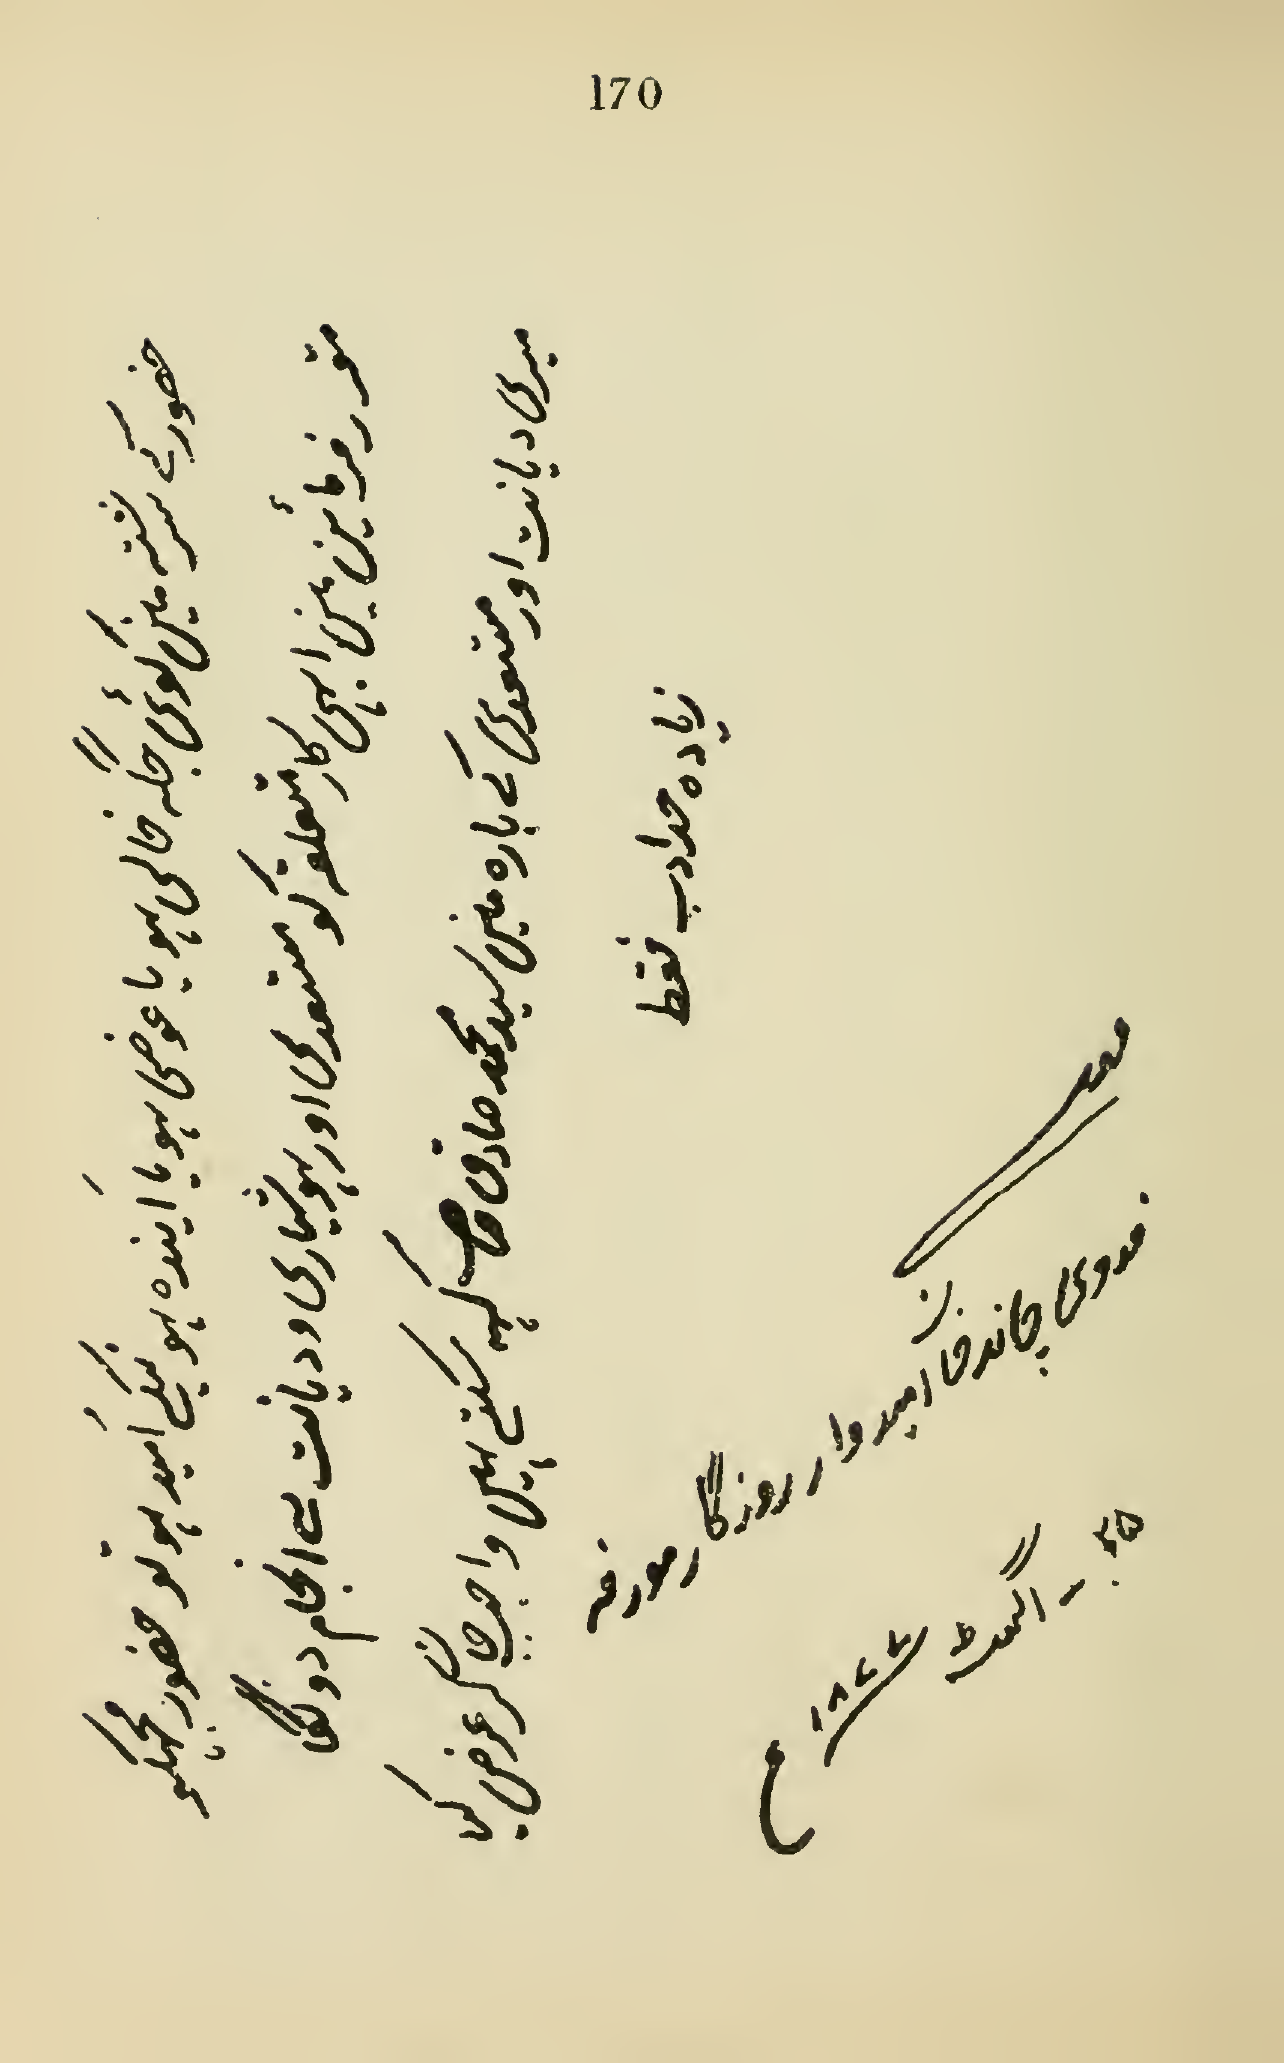 170
حضور کے سررشتہ مین کوئی جگہ خالی ہو یا عوضی ہو یا آیندہ ہونیکے اُمید ہو تو حضور مجہکو
مقرر فرمائین مین اپنی کار متعلقہ کو مستعدی اور ہوشیاری و دیانت سے انجام دونگا
میری دیانت اور مستعدی کے بارہ مین سید محمد صادق صاحب کہہ سکتے ہین واجب جانکر عرض کیا
زیادہ حد ادب فقط
فدوی چاند خان امیدوار روزگار مورخہ
۲۵ - اگسٹ ۱۸۷۷ ع